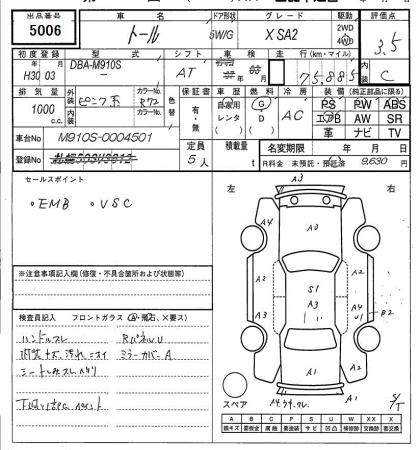 出品番号 車名 ドア形状 グレード 駆動 評価点
5006 トール 5W/G X SA2 2WD 4WD 3.5
初度登録 型式 シフト 車検 走行(km・マイル) 内装
H30 03 DBA-M910S AT 75,885 C
年 月
排気量 外装 カラーNo. 色替 保証書 車歴 燃料 冷房 装備(純正部品に限る)
1000 c.c. ピンク系 R72 有・無 自家用 レンタ G D AC PS PW ABS
内装 カラーNo. エアB AW SR
革 ナビ TV
車台No M910S-0004501 定員 積載量 名変期限 年 月 日
登録No 5人 t R料金 未預託・預託済 9,630
セールスポイント
・EMB ・VSC
左 右
A3
A4 A0
A2 S1 A2
A3 A3 A4 U1 B2
A1 A2 A1
※注意事項記入欄(修復・不具合箇所および状態等)
検査員記入 フロントガラス(A・飛石・×要ス)
ハンドルスレ RパネルU
内装キズ 汚れ ミラーカバーA
スペア
A B C P S U W X XX
線キズ 要板金 腐食 要塗装 サビ 凹凸 補修跡 要交換 交換済